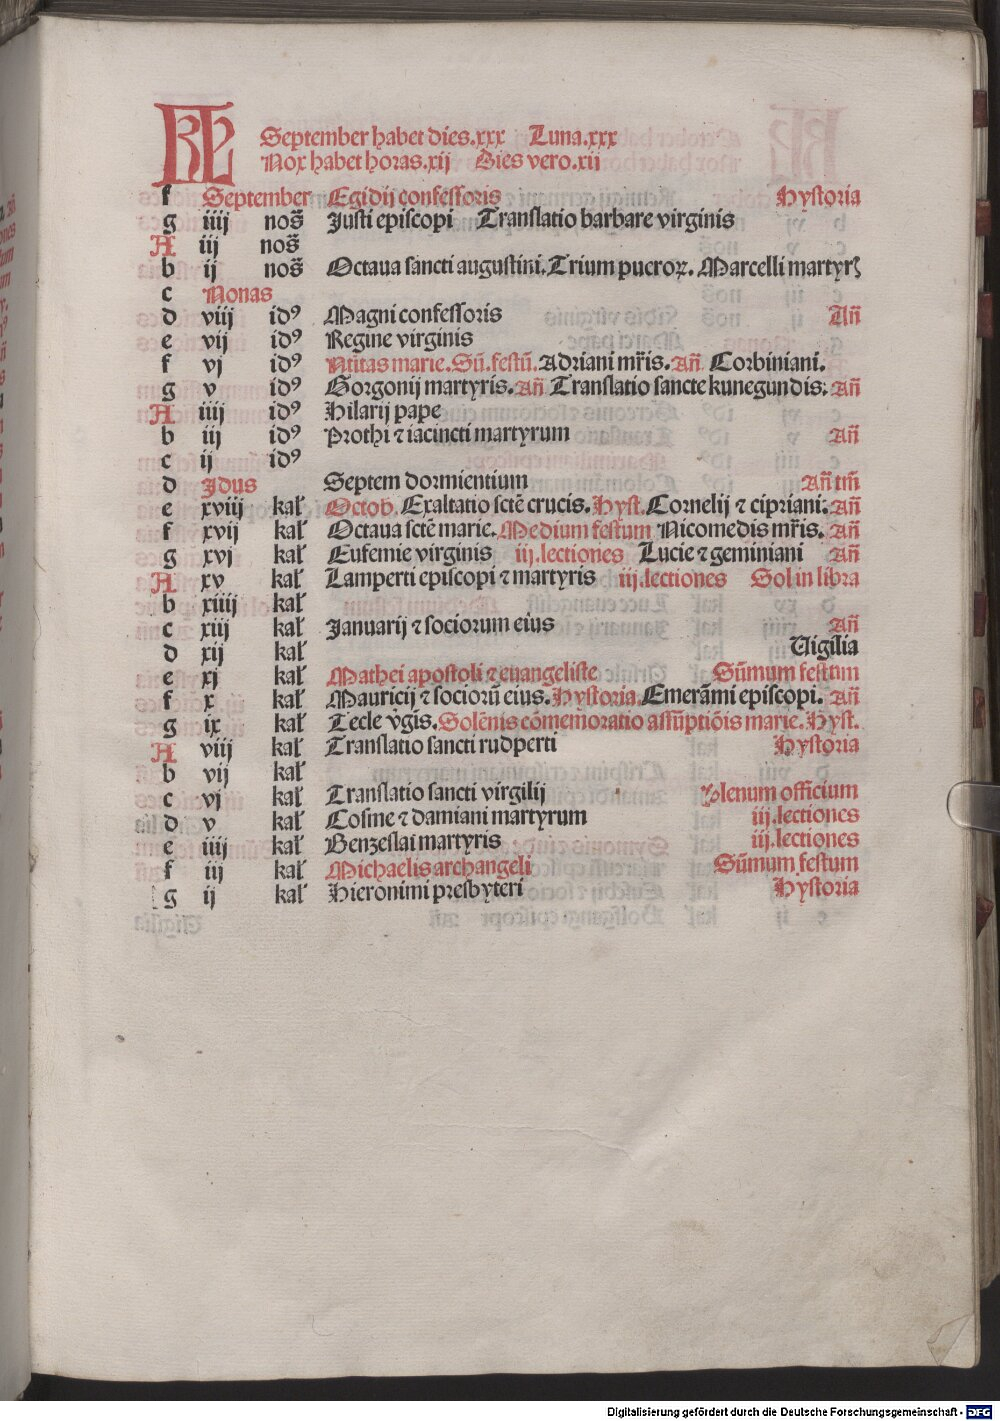 KL September habet dies.xxx Luna.xxx
Nox habet horas.xij Dies vero.xii
f September Egidij confessoris Hystoria
g iiij nos̄ Justi episcopi Translatio barbare virginis
A iij nos̄
b ij nos̄ Octaua sancti augustini. Trium pueroꝝ. Marcelli martyrꝭ
c Nonas
d viij idꝰ Magni confessoris An̄
e vij idꝰ Regine virginis
f vj idꝰ Nt̄itas marie. Sū. festū. Adriani mr̄is. An̄ Corbiniani.
g v idꝰ Gorgonij martyris. An̄ Translatio sancte kunegundis: An̄
A iiij idꝰ Hilarij pape
b iij idꝰ Prothi ⁊ iacincti martyrum An̄
c ij idꝰ
d Idus Septem dormientium An̄ tm̄
e xviij kal' Octob. Exaltatio sctē crucis. Hyst. Cornelij ⁊ cipriani: An̄
f xvij kal' Octaua sctē marie. Medium festum Nicomedis mr̄is. An̄
g xvj kal' Eufemie virginis iij.lectiones Lucie ⁊ geminiani An̄
A xv kal' Lamperti episcopi ⁊ martyris iij.lectiones Sol in libra
b xiiij kal'
c xiij kal' Januarij ⁊ sociorum eius An̄
d xij kal' Uigilia
e xj kal' Mathei apostoli ⁊ euangeliste Sūmum festum
f x kal' Mauricij ⁊ sociorū eius. Hystoria. Emerāmi episcopi. An̄
g ix kal' Tecle vḡis. Solēnis cōmēmoratio assūptiōis marie. Hyst.
A viij kal' Translatio sancti rudperti Hystoria
b vij kal'
c vj kal' Translatio sancti virgilij Plenum officium
d v kal' Cosine ⁊ damiani martyrum iij.lectiones
e iiij kal' Benzeslai martyris iij.lectiones
f iij kal' Michaelis archangeli Sūmum festum
g ij kal' Hieronimi presbyteri Hystoria
Digitalisierung gefördert durch die Deutsche Forschungsgemeinschaft - DFG